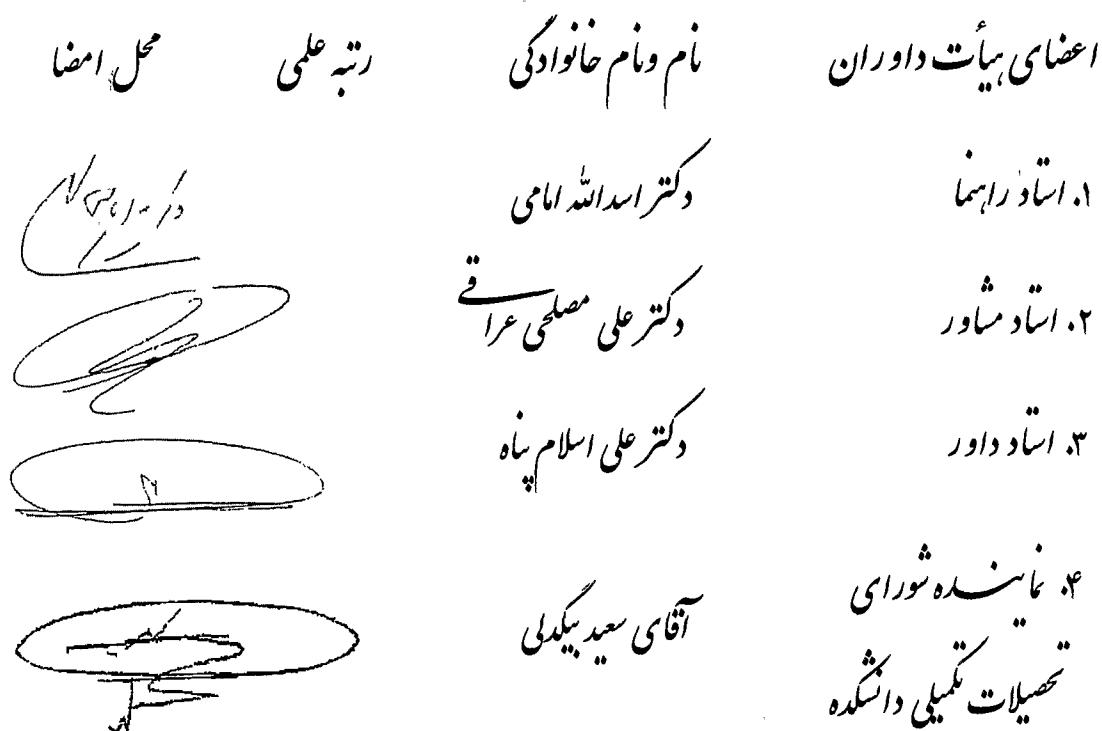 اعضای هیأت داوران نام ونام خانوادگی رتبه علمی محل امضا
۱. استاد راهنما دکتر اسدالله امامی
۲. استاد مشاور دکتر علی مصلحی عراقی
۳. استاد داور دکتر علی اسلام پناه
۴. نماینده شورای
تحصیلات تکمیلی دانشکده آقای سعید بیگدلی